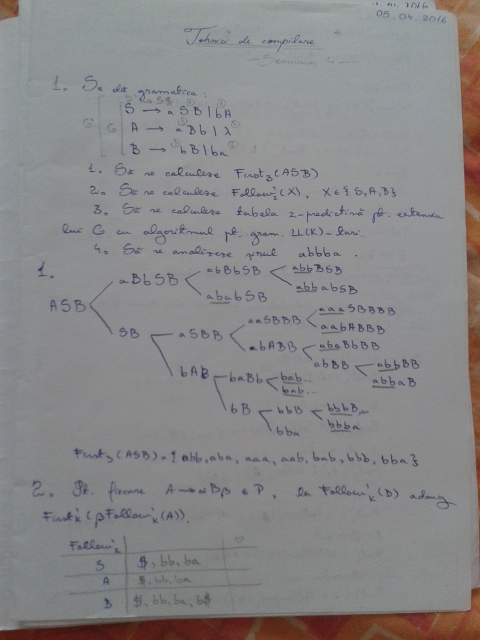 05.04.2016
Tehnici de compilare
- Seminar -
1. Se dă gramatica:
S' → S$
G' G S → aSB | bA
A → aBb | λ
B → bB | ba
1. Să se calculeze First₃(ASB)
2. Să se calculeze Follow'₂(X), X ∈ {S, A, B}
3. Să se calculeze tabela 2-predictivă pt. extensia
lui G cu algoritmul pt. gram. LL(K)-tari.
4. Să se analizeze șirul abbba.
1.
ASB
aBbSB
abBbSB
abbBSB
abbabSB
ababSB
SB
aSBB
aaSBBB
aaaSBBBB
aabABBB
abABB
abaBbBB
abBB
abbBB
abbaB
bAB
baBbB
bab..
bab..
bB
bbB
bbbB
bbba
bba
First₃(ASB) = {abb, aba, aaa, aab, bab, bbb, bba}
2. Pt. fiecare A → αBβ ∈ P, la Follow'ₖ(B) adaug
First'ₖ(βFollow'ₖ(A)).
Follow'₂
S $, bb, ba
A $, bb, ba
B $, bb, ba, b$